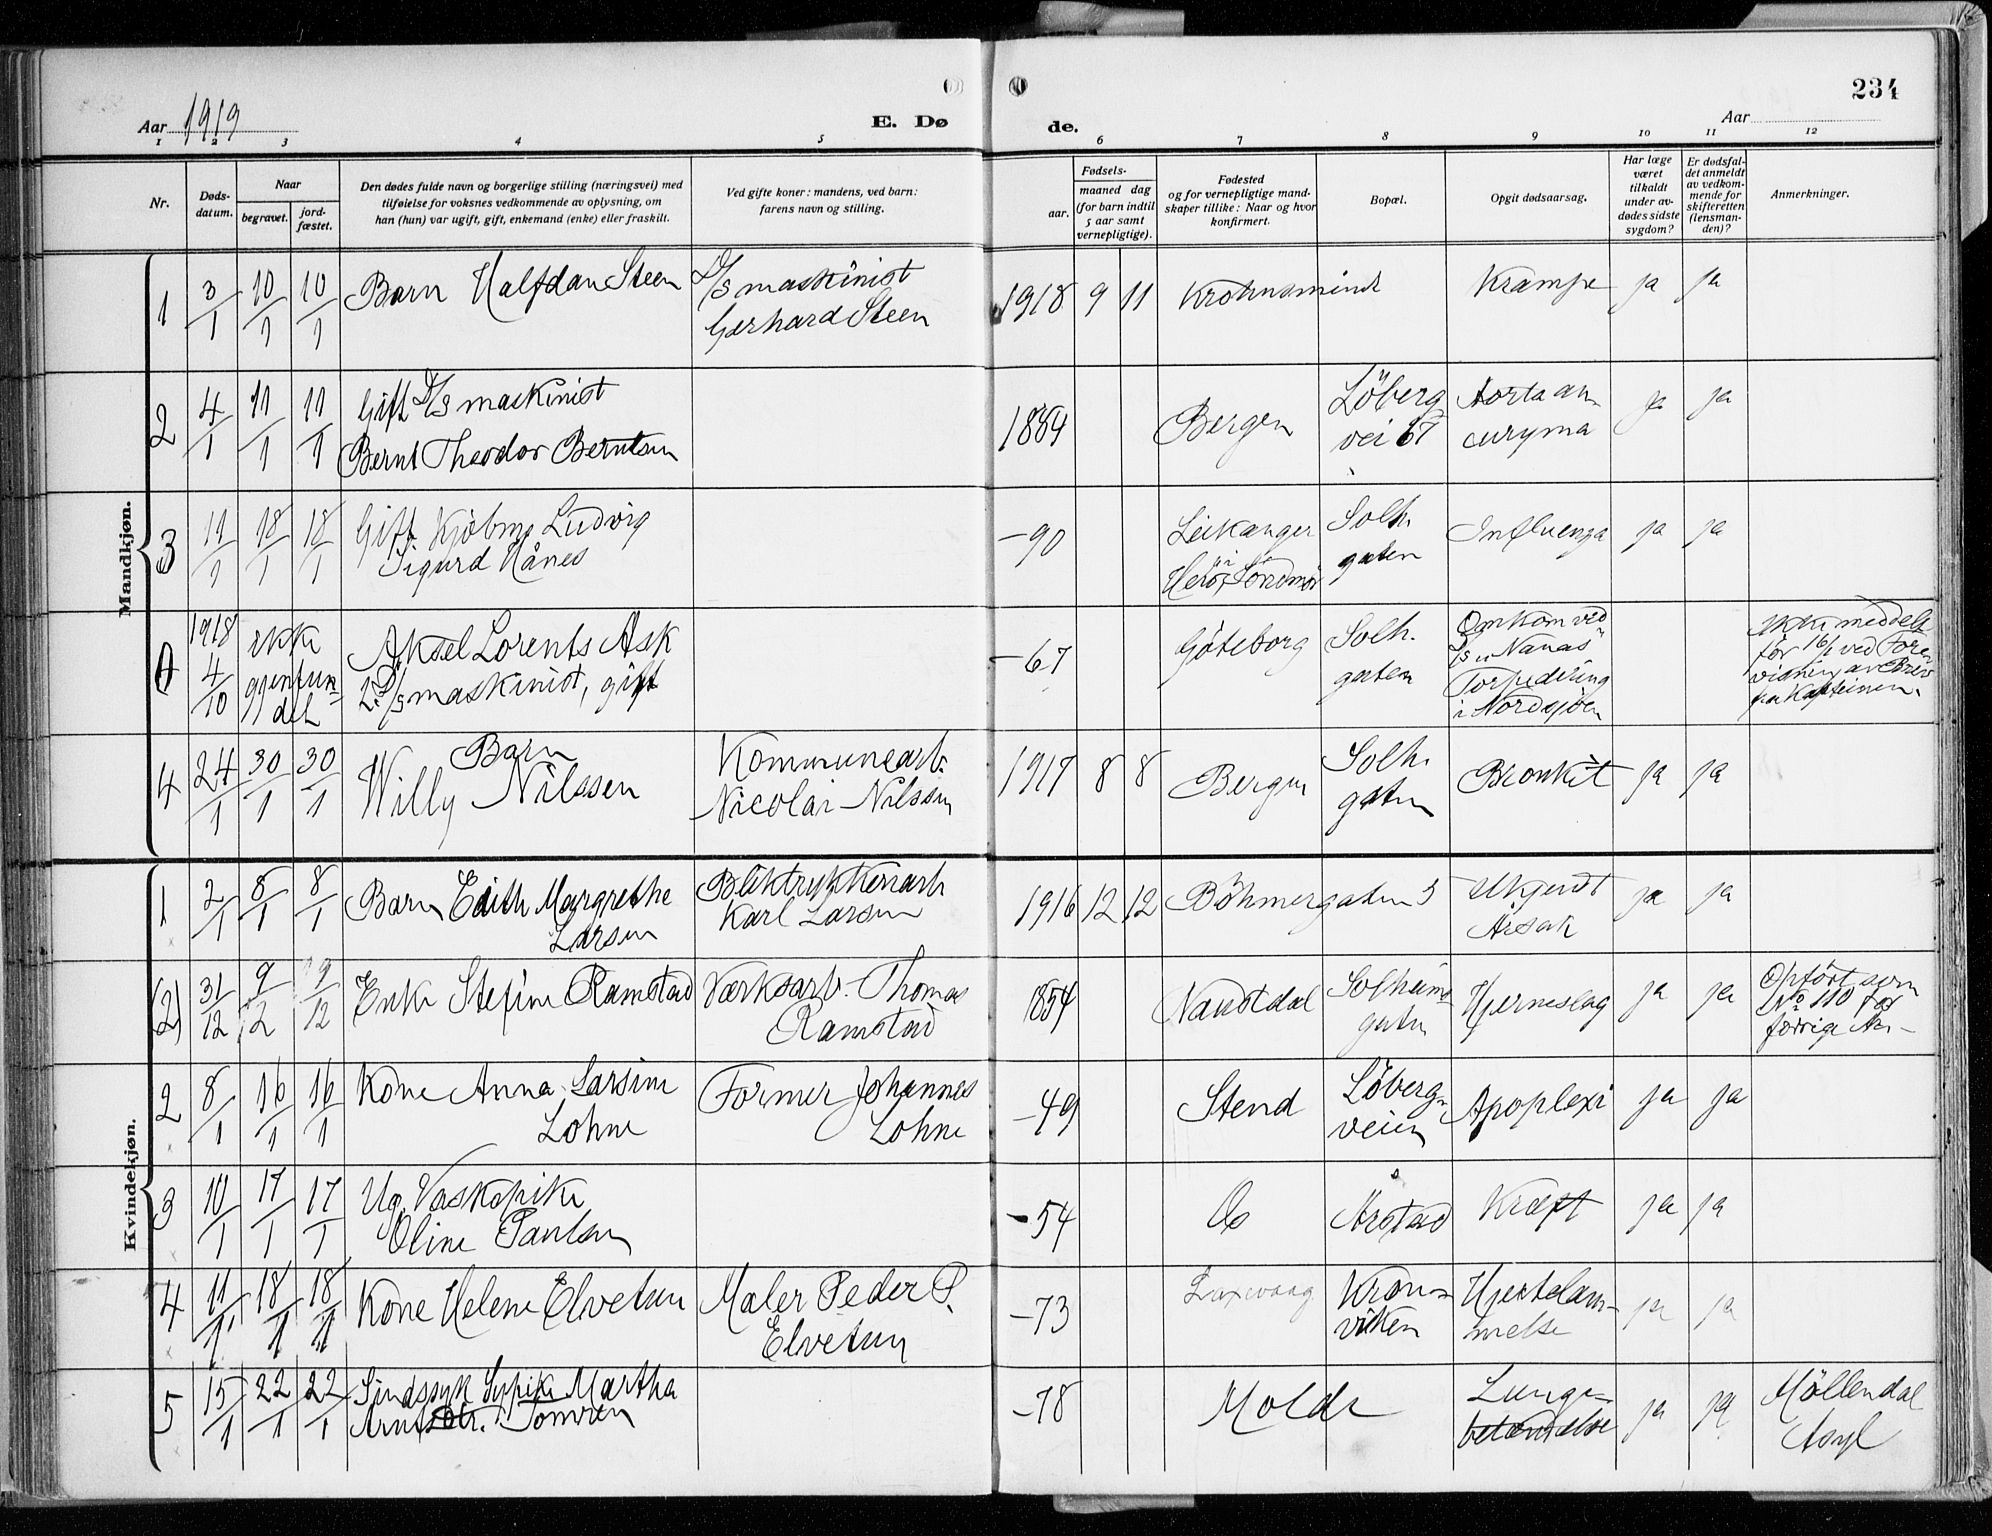 234
Aar 1919
E. Døde.
Aar
1 2 3 4 5 6 7 8 9 10 11 12
Nr.
Døds-
datum.
Naar
begravet.
jord-
fæstet.
Den dødes fulde navn og borgerlige stilling (næringsvei) med
tilføielse for voksnes vedkommende av oplysning, om
han (hun) var ugift, gift, enkemand (enke) eller fraskilt.
Ved gifte koner: mandens, ved barn:
farens navn og stilling.
Fødsels-
aar.
maaned dag
(for barn indtil
5 aar samt
vernepligtige).
Fødested
og for vernepligtige mand-
skaper tillike: Naar og hvor
konfirmert.
Bopæl.
Opgit dødsaarsag.
Har læge
været
tilkaldt
under av-
dødes sidste
sygdom?
Er dødsfal-
det anmeldt
av vedkom-
mende for
skifteretten
(lensman-
den)?
Anmerkninger.
Mandkjøn.
1 3/1 10/1 10/1 Barn Halfdan Steen D/s maskinist
Gerhard Steen
1918 9 11 Krohnsminde Krampe ja ja
2 4/1 11/1 11/1 Gift D/s maskinist
Bernt Theodor Berntsen
1889 Bergen Löberg
vei 67
Aorta an-
curyma
ja ja
3 11/1 18/1 18/1 Gift Kjöbm. Ludvig
Sigurd Hånes
-90 Leikanger
i
Herö, Söndmör
Solh.
gaten
Influenza ja ja
1918
4/10
ikke
gjenfun-
det
Aksel Lorents Ask
2. D/s maskinist, gift
-67 Göteborg Solh.
gaten
Omkom ved
D/s "Nanas"
Torpedering
i Nordsjöen
Ikke meddelt
för 16/1 ved Fore-
visning av Brev
fra Kapteinen.
4 24/1 30/1 30/1 Barn
Willy Nilssen
Kommunearb.
Nicolai Nilssen
1917 8 8 Bergen Solh.
gaten
Bronkit ja ja
Kvindekjøn.
1 2/1 8/1 8/1 Barn Edith Margrethe
Larsen
Bliktrykkeriarb
Karl Larsen
1916 12 12 Böhmergaten 5 Ukjendt
Årsak
ja ja
(2) 31/12 9/12 9/12 Enke Stefine Ramstad Værksarb. Thomas
Ramstad
1854 Naustdal Solheims
gaten
Hjerneslag ja ja Opfört som
No 110 for
forrige Aar-
2 8/1 16/1 16/1 Kone Anna Larsine
Lohne
Former Johannes
Lohne
-49 Stend Löberg-
veien
Apoplexi ja ja
3 10/1 17/1 17/1 Ug. Vaskepike
Oline Paulsen
-54 Os Årstad Kræft ja ja
4 11/1 18/1 18/1 Kone Helene Elvetun Maler Peder P.
Elvetun
-73 Laxevaag Kron-
viken
Hjertelam-
melse
ja ja
5 15/1 22/1 22/1 Sindssyk Sypike Martha
Arntsdtr. Tomren
-78 Molde Lunge-
betændelse
ja ja Möllendal
Asyl